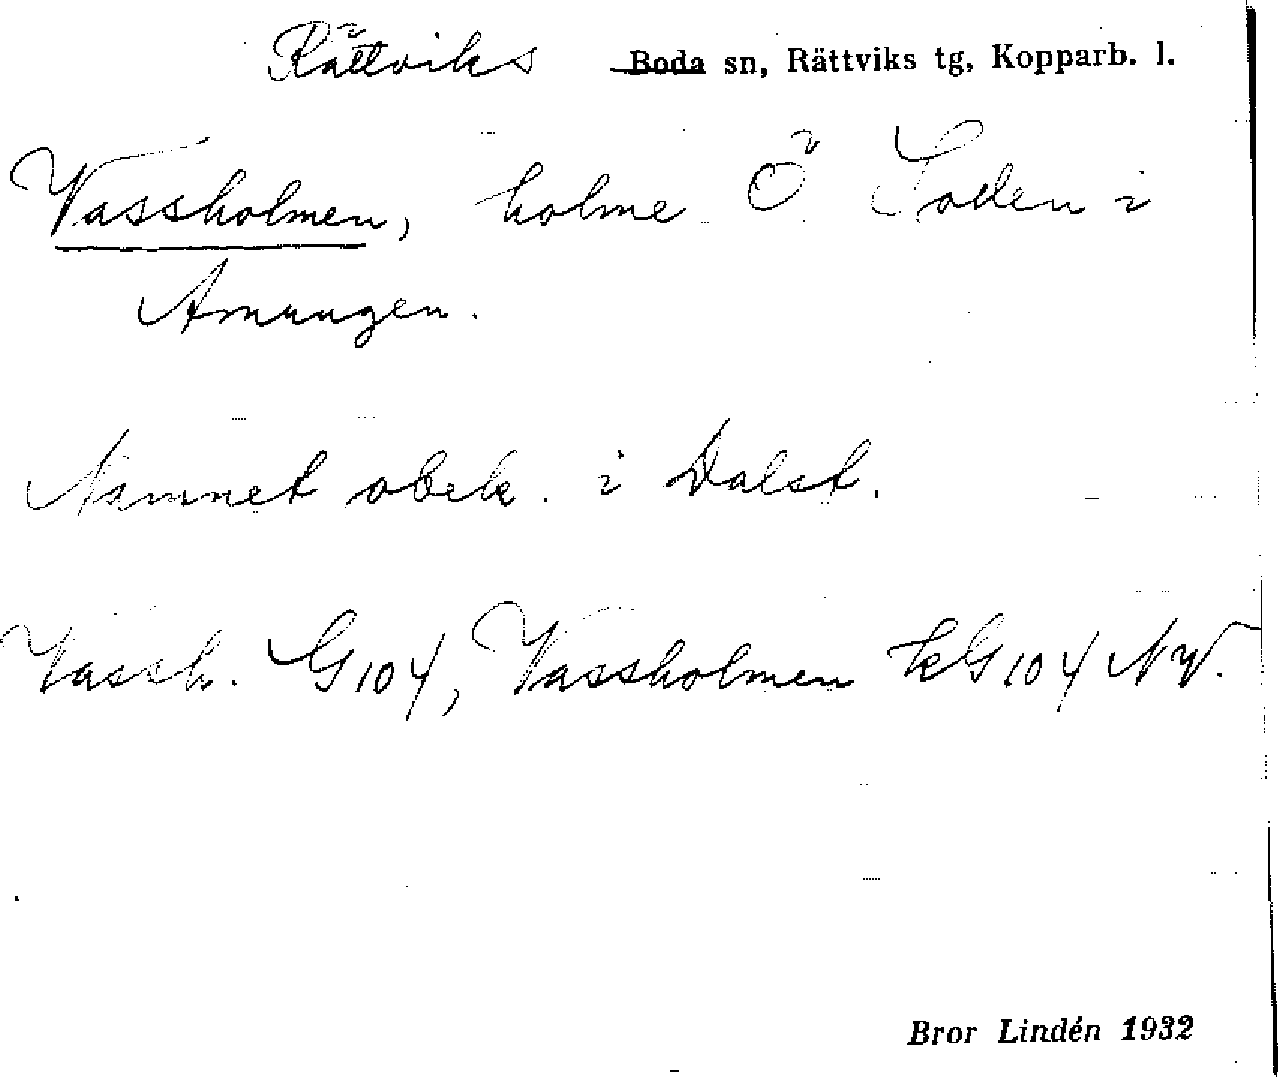 Rättviks Boda sn, Rättviks tg, Kopparb. l.
Vassholmen, holme Ö. Loden i
Amungen.
Namnet obek. i Dalst.
Vassh. G 104, Vassholmen kG 104 NV.
Bror Lindén 1932